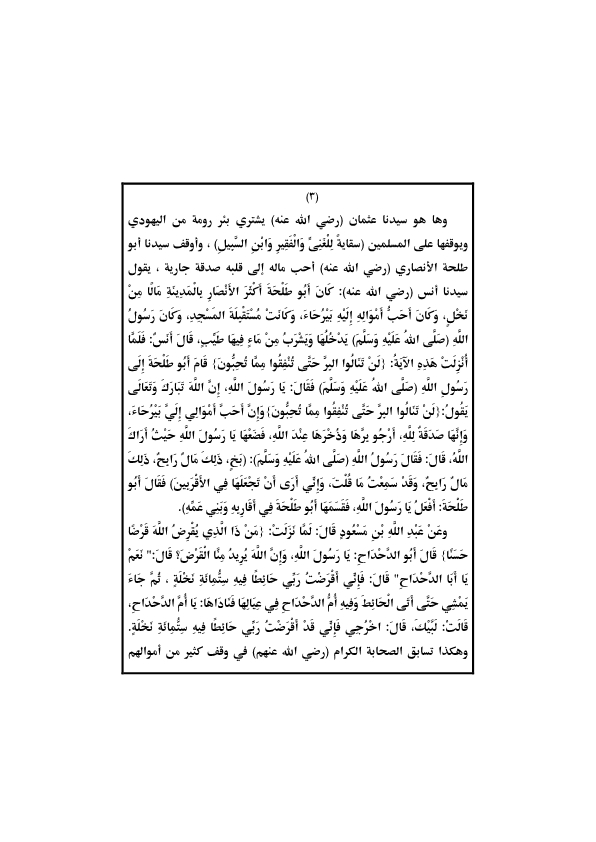 (٣)
وها هو سيدنا عثمان (رضي الله عنه) يشتري بئر رومة من اليهودي
ويوقفها على المسلمين (سقايةً لِلْغَنِيِّ وَالْفَقِيرِ وَابْنِ السَّبِيلِ) ، وأوقف سيدنا أبو
طلحة الأنصاري (رضي الله عنه) أحب ماله إلى قلبه صدقة جارية ، يقول
سيدنا أنس (رضي الله عنه): كَانَ أَبُو طَلْحَةَ أَكْثَرَ الأَنْصَارِ بِالْمَدِينَةِ مَالًا مِنْ
نَخْلٍ، وَكَانَ أَحَبُّ أَمْوَالِهِ إِلَيْهِ بَيْرُحَاءَ، وَكَانَتْ مُسْتَقْبِلَةَ المَسْجِدِ، وَكَانَ رَسُولُ
اللَّهِ (صَلَّى اللهُ عَلَيْهِ وَسَلَّمَ) يَدْخُلُهَا وَيَشْرَبُ مِنْ مَاءٍ فِيهَا طَيِّبٍ، قَالَ أَنَسٌ: فَلَمَّا
أُنْزِلَتْ هَذِهِ الآيَةُ: {لَنْ تَنَالُوا البِرَّ حَتَّى تُنْفِقُوا مِمَّا تُحِبُّونَ} قَامَ أَبُو طَلْحَةَ إِلَى
رَسُولِ اللَّهِ (صَلَّى اللهُ عَلَيْهِ وَسَلَّمَ) فَقَالَ: يَا رَسُولَ اللَّهِ، إِنَّ اللَّهَ تَبَارَكَ وَتَعَالَى
يَقُولُ:{لَنْ تَنَالُوا البِرَّ حَتَّى تُنْفِقُوا مِمَّا تُحِبُّونَ}وَإِنَّ أَحَبَّ أَمْوَالِي إِلَيَّ بَيْرُحَاءَ،
وَإِنَّهَا صَدَقَةٌ لِلَّهِ، أَرْجُو بِرَّهَا وَذُخْرَهَا عِنْدَ اللَّهِ، فَضَعْهَا يَا رَسُولَ اللَّهِ حَيْثُ أَرَاكَ
اللَّهُ، قَالَ: فَقَالَ رَسُولُ اللَّهِ (صَلَّى اللهُ عَلَيْهِ وَسَلَّمَ): (بَخٍ، ذَلِكَ مَالٌ رَابِحٌ، ذَلِكَ
مَالٌ رَابِحٌ، وَقَدْ سَمِعْتُ مَا قُلْتَ، وَإِنِّي أَرَى أَنْ تَجْعَلَهَا فِي الأَقْرَبِينَ) فَقَالَ أَبُو
طَلْحَةَ: أَفْعَلُ يَا رَسُولَ اللَّهِ، فَقَسَمَهَا أَبُو طَلْحَةَ فِي أَقَارِبِهِ وَبَنِي عَمِّهِ).
وعَنْ عَبْدِ اللَّهِ بْنِ مَسْعُودٍ قَالَ: لَمَّا نَزَلَتْ: {مَنْ ذَا الَّذِي يُقْرِضُ اللَّهَ قَرْضًا
حَسَنًا} قَالَ أَبُو الدَّحْدَاحِ: يَا رَسُولَ اللَّهِ، وَإِنَّ اللَّهَ يُرِيدُ مِنَّا الْقَرْضَ؟ قَالَ:" نَعَمْ
يَا أَبَا الدَّحْدَاحِ" قَالَ: فَإِنِّي أَقْرَضْتُ رَبِّي حَائِطًا فِيهِ سِتُّمِائَةِ نَخْلَةٍ ، ثُمَّ جَاءَ
يَمْشِي حَتَّى أَتَى الْحَائِطَ وَفِيهِ أُمُّ الدَّحْدَاحِ فِي عِيَالِهَا فَنَادَاهَا: يَا أُمَّ الدَّحْدَاحِ،
قَالَتْ: لَبَّيْكَ، قَالَ: اخْرُجِي فَإِنِّي قَدْ أَقْرَضْتُ رَبِّي حَائِطًا فِيهِ سِتُّمِائَةِ نَخْلَةٍ.
وهكذا تسابق الصحابة الكرام (رضي الله عنهم) في وقف كثير من أموالهم